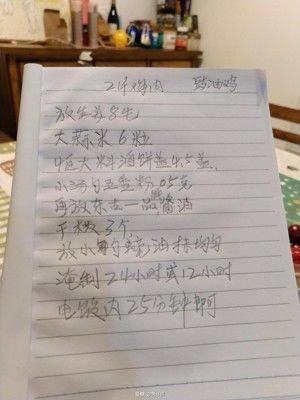 2斤鸡肉 豉油鸡
放生姜8毛
大蒜米6粒
恒大料酒饼盖4.5盖
小汤勺五香粉05克
再放东古一品酱油
干椒3个
放小勺蚝油抹均匀
淹制24小时或12小时
电饭内25分钟即可